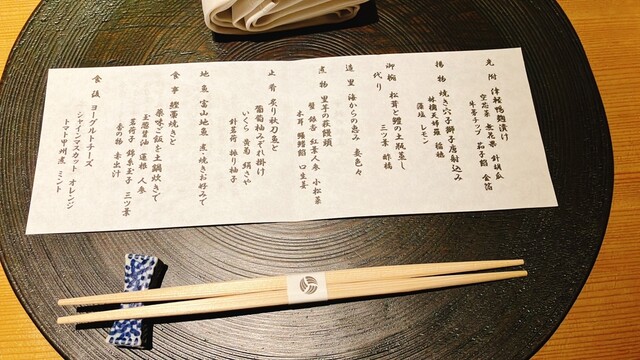 先附 津軽鴨麹漬け
空芯菜 無花果 針胡瓜
牛蒡チップ 茄子餡 金箔
揚物 焼き穴子獅子唐射込み
蓮根天婦羅 稲穂
藻塩 レモン
御椀 松茸と鱧の土瓶蒸し
代り
三つ葉 酢橘
造里 海からの恵み 妻色々
煮物 里芋の萩饅頭
蟹 銀杏 紅葉人参 小松菜
木耳 鰻鱈餡 口生姜
止肴 炙り秋刀魚と
葡萄柚みぞれ掛け
いくら 黄菊 絹さや
針茗荷 振り柚子
地魚 富山地魚 煮・焼きお好みで
食事 鰹藁焼きと
薬味ご飯を土鍋炊きで
玉地醤油 蓮根 人参
茗荷子 錦糸玉子 三つ葉
香の物 赤出汁
食後 ヨーグルトチーズ
シャインマスカット オレンジ
トマト甲州煮 ミント